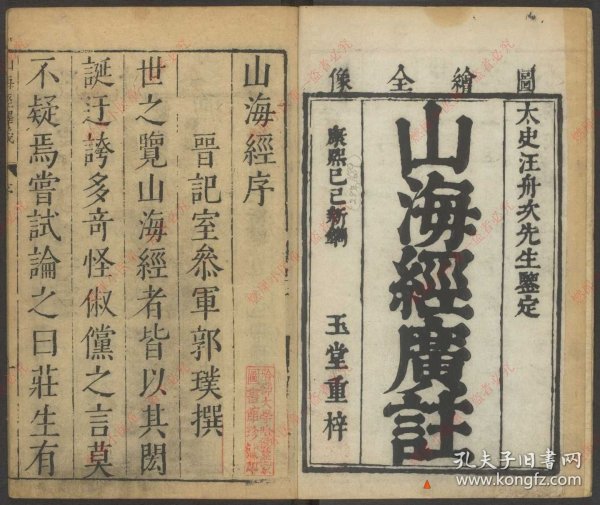 圖繪全像
太史汪舟次先生鑒定
山海經廣註
康熙己巳新鐫
玉堂重梓
山海經序
晉記室叅軍郭璞撰
世之覽山海經者皆以其閎
誕迂誇多竒怪俶儻之言莫
不疑焉嘗試論之曰莊生有
盗者必究
孔夫子旧书网
book.kongfz.com